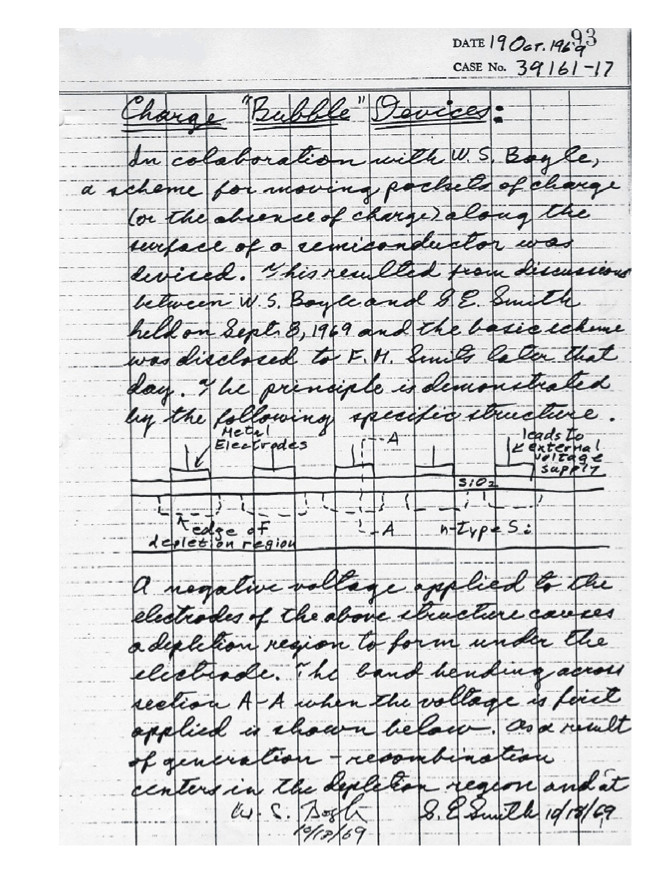 93
DATE 19 Oct. 1969
CASE No. 39161-17
Charge "Bubble" Devices:
In colaboration with W. S. Boyle,
a scheme for moving pockets of charge
(or the absence of charge) along the
surface of a semiconductor was
devised. This resulted from discussions
between W. S. Boyle and G. E. Smith
held on Sept. 8, 1969 and the basic scheme
was disclosed to F. M. Smits later that
day. The principle is demonstrated
by the following specific structure.
Metal
Electrodes
A
leads to
external
voltage
supply
SiO2
edge of
depletion region
A
n-type Si
A negative voltage applied to the
electrodes of the above structure causes
a depletion region to form under the
electrode. The band bending across
section A-A when the voltage is first
applied is shown below. As a result
of generation - recombination
centers in the depletion region and at
W. S. Boyle
10/18/69
G. E. Smith 10/18/69